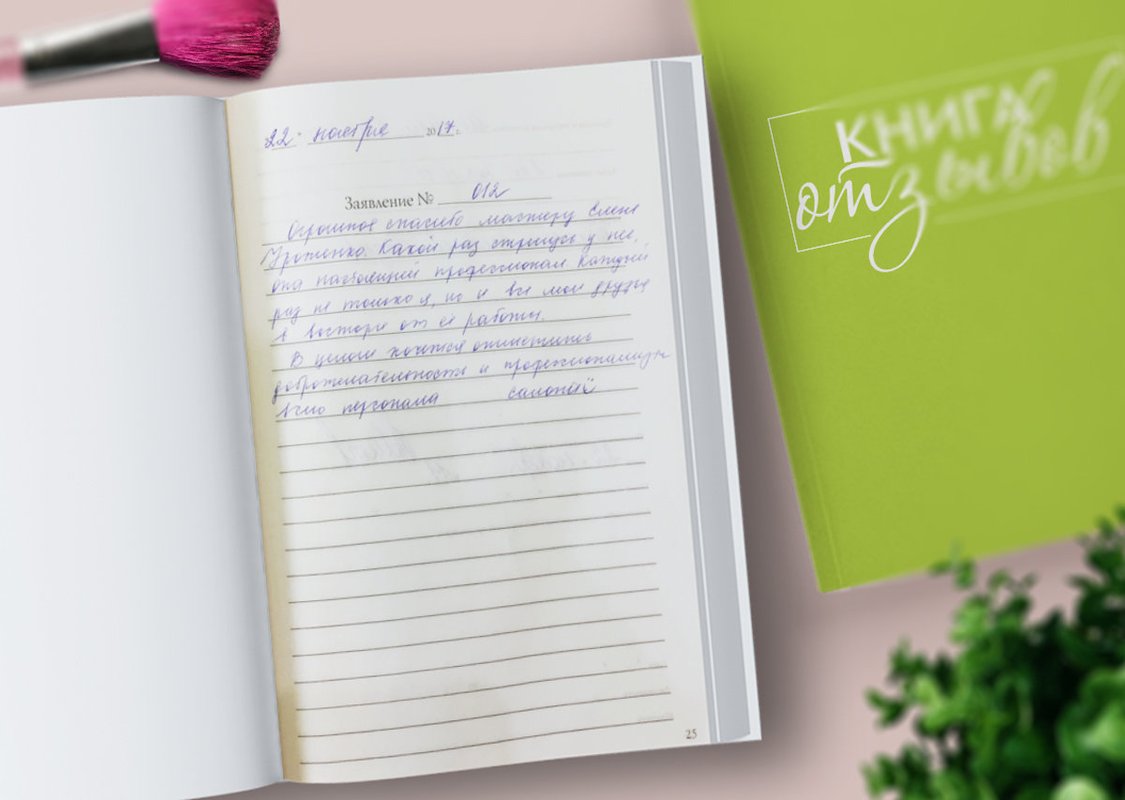 22 ноября 2017 г.
Заявление № 012
Огромное спасибо мастеру Елене
Кажой раз стригусь у нее,
она настоящий профессионал Каждый
раз не только я, но и все мои друзья
в восторге от её работы.
В целом хочется отметить
доброжелательность и профессионализм
всего персонала салона
25
КНИГА
отзывов